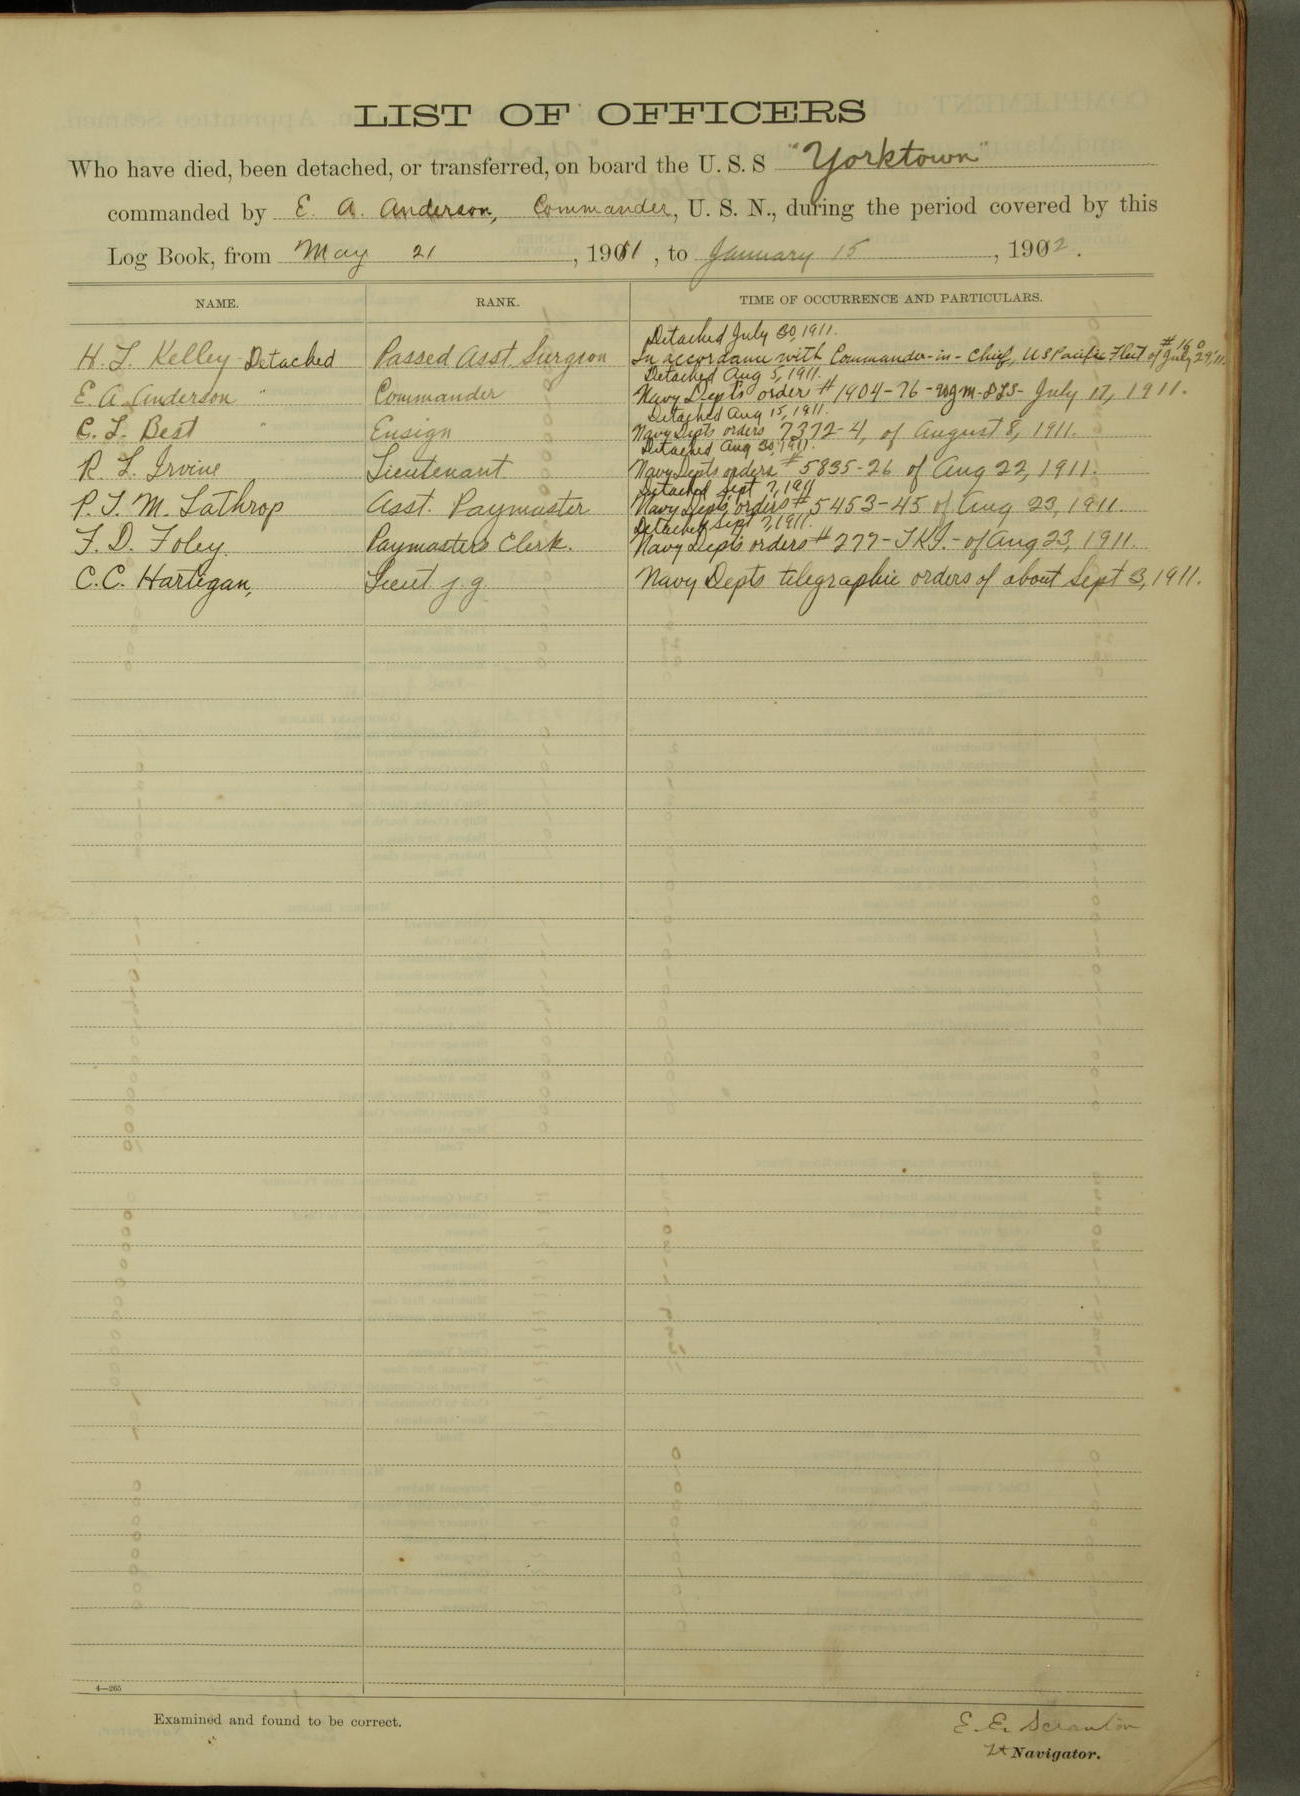 LIST OF OFFICERS
Who have died, been detached, or transferred, on board the U. S. S "Yorktown"
commanded by E. A. Anderson, Commander, U. S. N., during the period covered by this
Log Book, from May 21, 1911, to January 15, 1912.
NAME. RANK. TIME OF OCCURRENCE AND PARTICULARS.
Detached July 30, 1911.
H. L. Kelley Detached Passed Asst. Surgeon In accordance with Commander-in-Chief, U S Pacific Fleet #160 of July 29, '11.
Detached Aug 5, 1911.
E. A. Anderson " Commander Navy Dep'ts order #1904-76- July 17, 1911.
Detached Aug 15, 1911.
C. L. Best " Ensign Navy Depts orders 7372-4, of August 8, 1911.
Detached Aug 30, 1911.
R. L. Irvine Lieutenant Navy Depts orders #5835-26 of Aug 22, 1911.
Detached Sept 7, 1911
P. T. M. Lathrop Asst. Paymaster Navy Depts orders #5453-45 of Aug 23, 1911.
Detached Sept 7, 1911.
F. D. Foley. Paymasters Clerk. Navy Dep'ts orders #277- of Aug 23, 1911.
C. C. Hartigan, Lieut j. g. Navy Depts telegraphic orders of about Sept 3, 1911.
4—265
Examined and found to be correct.
E. E. Scranton
Lt Navigator.